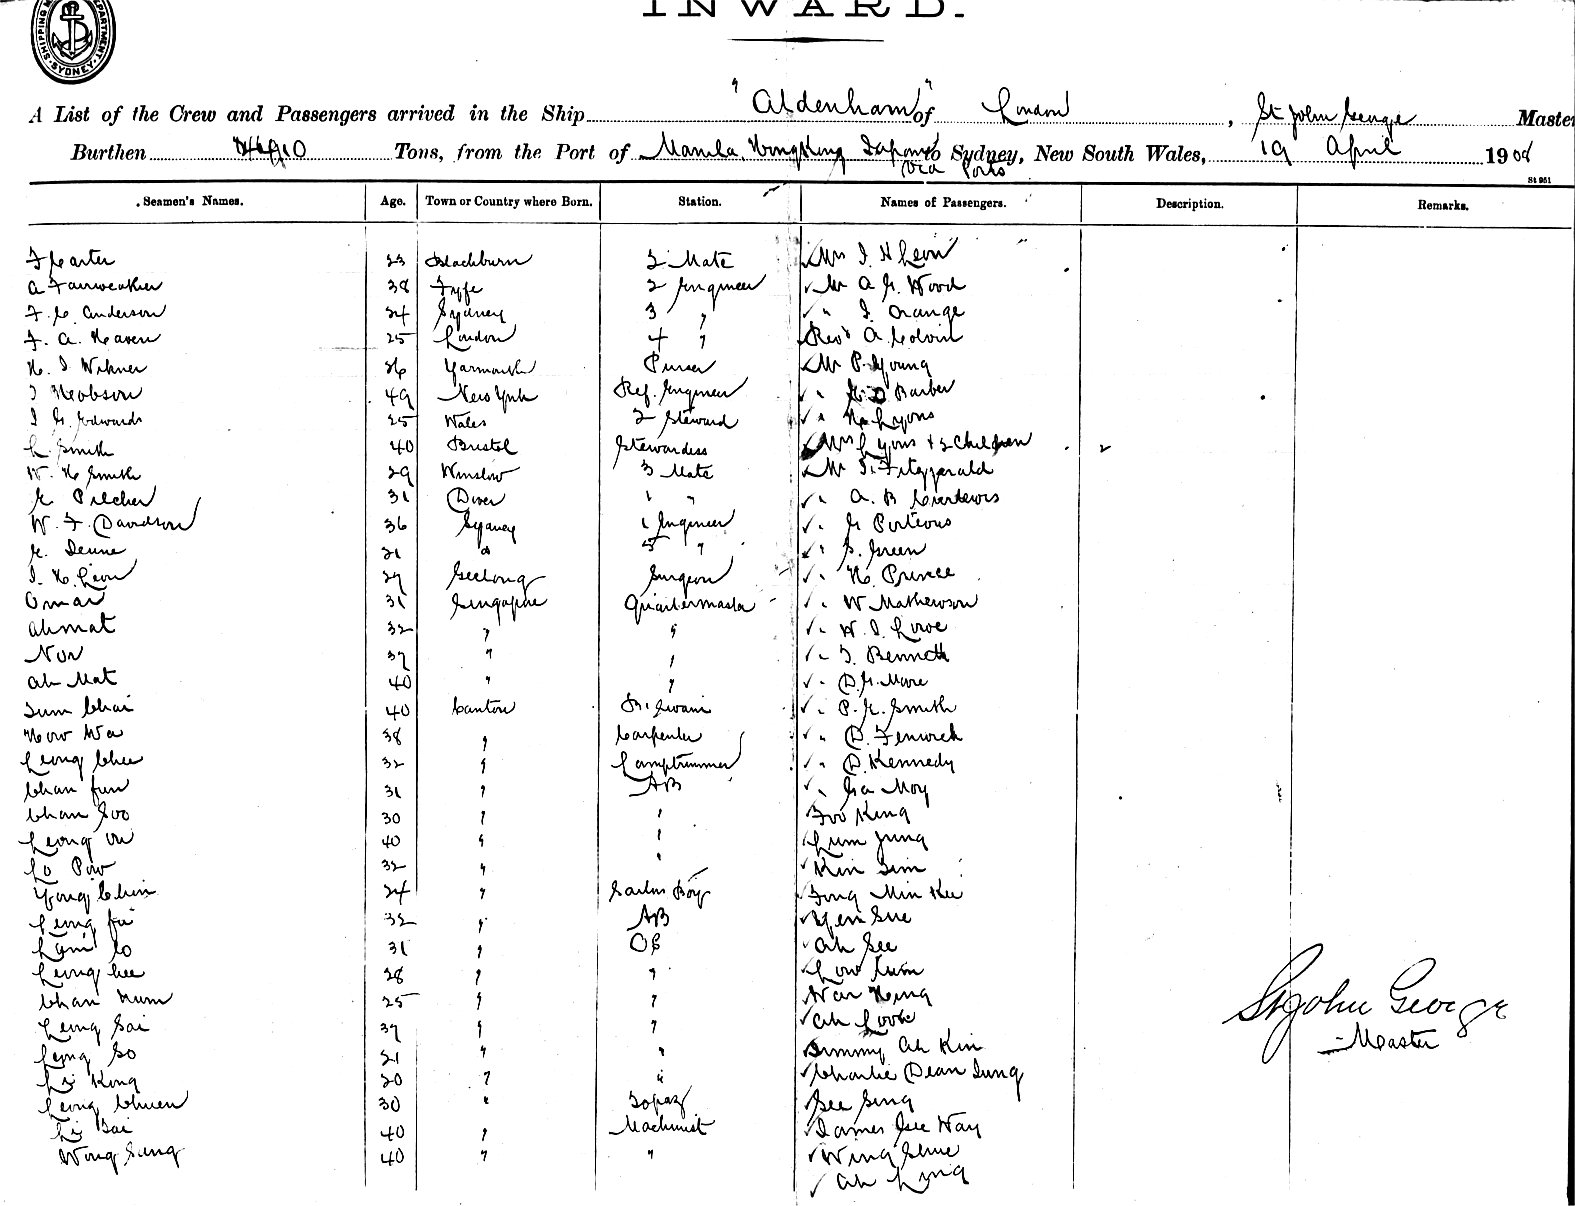 INWARD.
SHIPPING DEPARTMENT SYDNEY
A List of the Crew and Passengers arrived in the Ship "Aldenham" of London, St John George Master
Burthen Tons, from the Port of Manila, Hongkong Japan to Sydney, New South Wales, 19 April 1908
via Ports
St 951
Seamen's Names. Age. Town or Country where Born. Station. Names of Passengers. Description. Remarks.
F Carter 23 Blackburn 2 Mate Mrs J. H Leon
A Fairweather 38 Fyffe 2 Engineer Mr A. G. Wood
F. C. Anderson 24 Sydney 3 " " J. Orange
F. A. Heaven 25 London 4 " Revd A. Colvin
H. J. 26 Yarmouth Purser Mr P. Young
J Hobson 49 New York Ref. Engineer " Barber
J G. Edwards 25 Wales 2 Steward " H. Lyons
L. Smith 40 Bristol Stewardess Mrs Lyons + 2 Children 2
W. H Smith 29 Winslow 3 Mate Mr J. Fitzgerald
E. Pilcher 31 Dover 1 " " A. B
W. F. Davidson 36 Sydney 1 Engineer " G Porteous
E. Deune 21 " 5 " " S. Green
J. H. Leon 27 Geelong Surgeon " H. Prince
Omar 31 Singapore Quartermaster " W Mathewson
Ahmat 32 " " " W. J. Lowe
Nor 37 " " " J. Bennett
Ah Mat 40 " " " D. G. More
Sum Chai 40 Canton " P. E. Smith
How Wa 38 " Carpenter " D. Fenwick
Leong Chee 32 " Lamptrimmer " D. Kennedy
Chan Fun 31 " AB " Ga Moy
Chan Soo 30 " " Foo King
Leong On 40 " " Lum Jung
Lo Pow 32 " " Kin Sim
Yong Chin 24 " Sailors Boy Fong Min Kee
Leong Fa 32 " AB Yen Sue
Lam Lo 31 " OS Ah See
Leong Kee 28 " " Low Kum
Chan Kum 25 " " War Hing
Leong Sai 37 " " Ah Look
Leong So 21 " " Jimmy Ah Kin
Li King 20 " " Charlie Dean Sung
Leong Chuen 30 " Topaz See Sing
Li Sai 40 " Machinist James Gee Way
Wong Sang 40 " " Wing Shue
Ah Ling
St John George
Master